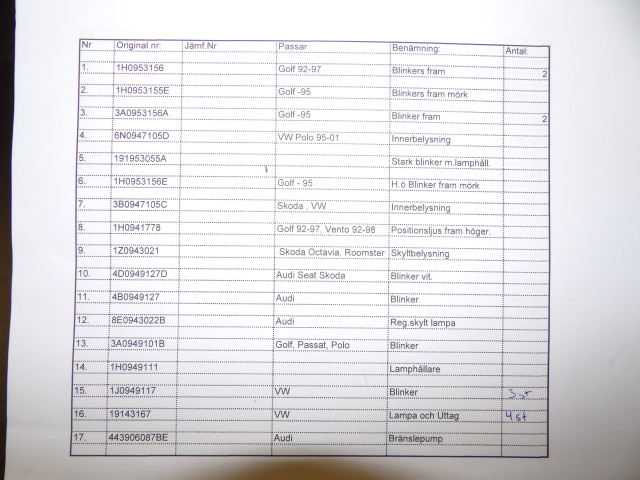 Nr Original nr: Jämf.Nr Passar : Benämning: Antal:
1. 1H0953156 Golf 92-97 Blinkers fram 2
2. 1H0953155E Golf -95 Blinkers fram mörk
3. 3A0953156A Golf -95 Blinker fram 2
4. 6N0947105D VW Polo 95-01 Innerbelysning
5. 191953055A Stark blinker m.lamphåll.
6. 1H0953156E Golf - 95 H.ö Blinker fram mörk
7. 3B0947105C Skoda , VW Innerbelysning
8. 1H0941778 Golf 92-97, Vento 92-98 Positionsljus fram höger.
9. 1Z0943021 Skoda Octavia, Roomster Skyltbelysning
10. 4D0949127D Audi Seat Skoda Blinker vit.
11. 4B0949127 Audi Blinker
12. 8E0943022B Audi Reg.skylt lampa
13. 3A0949101B Golf, Passat, Polo Blinker
14. 1H0949111 Lamphållare
15. 1J0949117 VW Blinker 3 st
16. 19143167 VW Lampa och Uttag 4 st
17. 443906087BE Audi Bränslepump